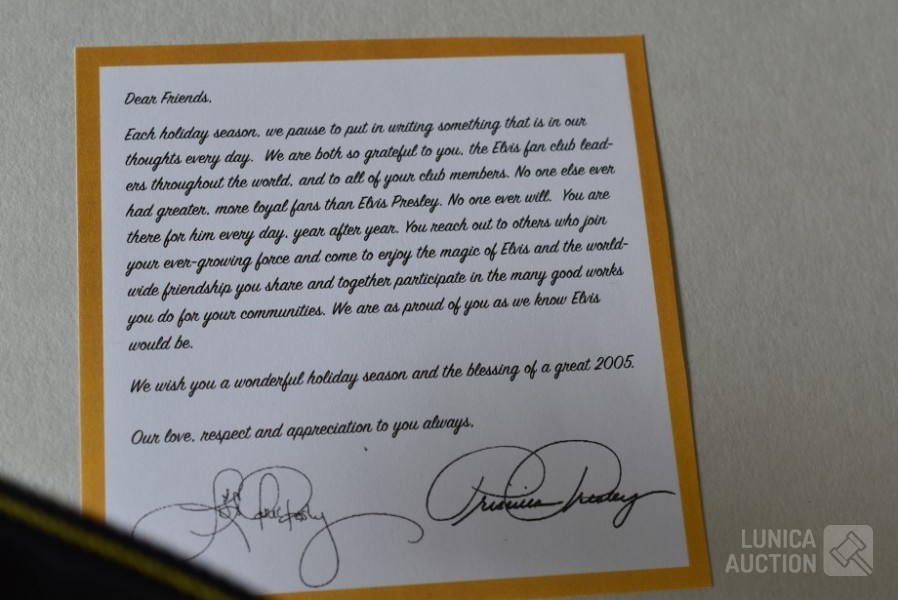 Dear Friends,
Each holiday season, we pause to put in writing something that is in our
thoughts every day. We are both so grateful to you, the Elvis fan club lead-
ers throughout the world, and to all of your club members. No one else ever
had greater, more loyal fans than Elvis Presley. No one ever will. You are
there for him every day, year after year. You reach out to others who join
your ever-growing force and come to enjoy the magic of Elvis and the world-
wide friendship you share and together participate in the many good works
you do for your communities. We are as proud of you as we know Elvis
would be.
We wish you a wonderful holiday season and the blessing of a great 2005.
Our love, respect and appreciation to you always,
Priscilla Presley
LUNICA
AUCTION